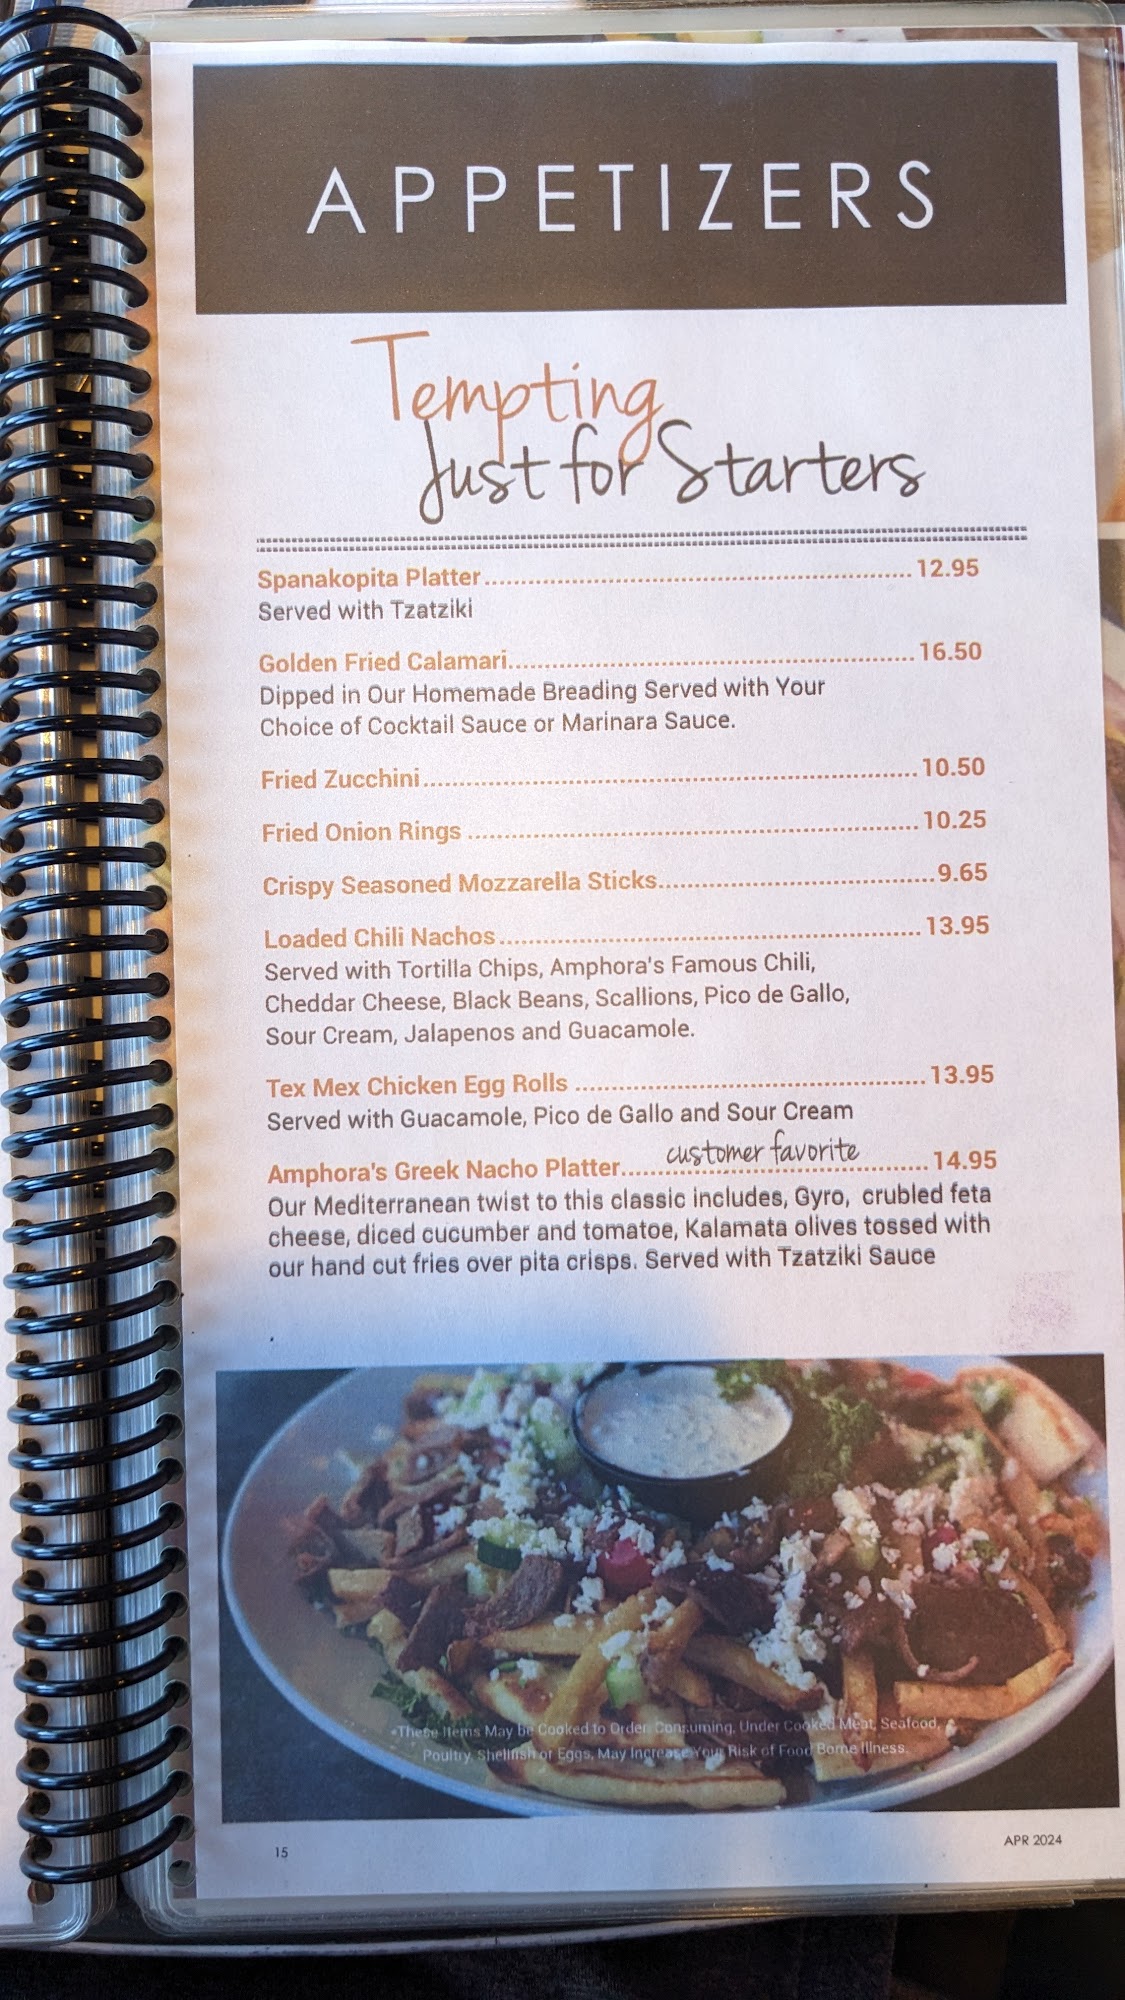 APPETIZERS
Tempting
Just for Starters
Spanakopita Platter.......................................................... 12.95
Served with Tzatziki
Golden Fried Calamari....................................................... 16.50
Dipped in Our Homemade Breading Served with Your
Choice of Cocktail Sauce or Marinara Sauce.
Fried Zucchini................................................................... 10.50
Fried Onion Rings ............................................................. 10.25
Crispy Seasoned Mozzarella Sticks..................................... 9.65
Loaded Chili Nachos......................................................... 13.95
Served with Tortilla Chips, Amphora's Famous Chili,
Cheddar Cheese, Black Beans, Scallions, Pico de Gallo,
Sour Cream, Jalapenos and Guacamole.
Tex Mex Chicken Egg Rolls ............................................... 13.95
Served with Guacamole, Pico de Gallo and Sour Cream
customer favorite
Amphora's Greek Nacho Platter.......................................... 14.95
Our Mediterranean twist to this classic includes, Gyro, crubled feta
cheese, diced cucumber and tomatoe, Kalamata olives tossed with
our hand cut fries over pita crisps. Served with Tzatziki Sauce
*These Items May be Cooked to Order. Consuming, Under Cooked Meat, Seafood,
Poultry, Shellfish or Eggs, May Increase Your Risk of Food Borne Illness.
15
APR 2024